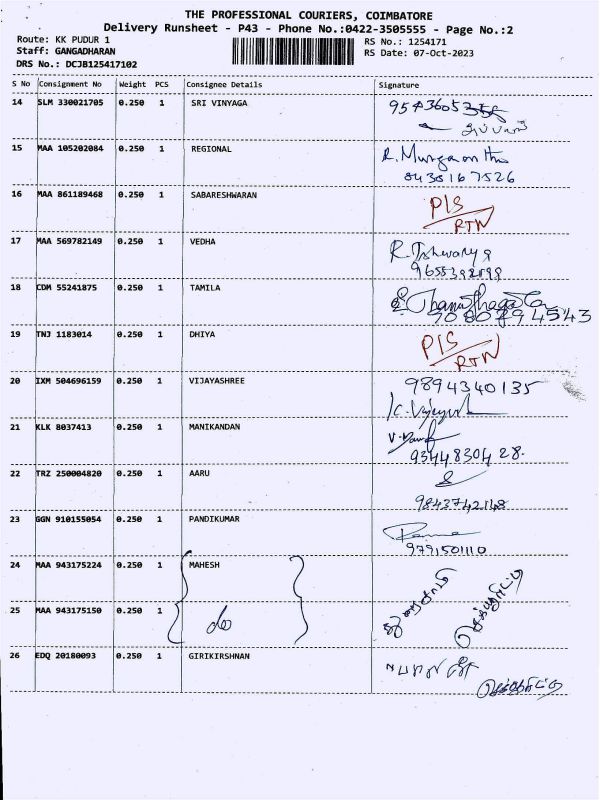 THE PROFESSIONAL COURIERS, COIMBATORE
Delivery Runsheet - P43 - Phone No.:0422-3505555 - Page No.:2
Route: KK PUDUR 1
RS No.: 1254171
Staff: GANGADHARAN
RS Date: 07-Oct-2023
DRS No.: DCJB125417102
S No Consignment No Weight PCS Consignee Details Signature
14 SLM 330021705 0.250 1 SRI VINYAGA
15 MAA 105202084 0.250 1 REGIONAL
8438167526
16 MAA 861189468 0.250 1 SABARESHWARAN P/S
RTN
17 MAA 569782149 0.250 1 VEDHA
18 CDM 55241875 0.250 1 TAMILA
19 TNJ 1183014 0.250 1 DHIYA P/S
RTN
20 IXM 504696159 0.250 1 VIJAYASHREE 9894340135
21 KLK 8037413 0.250 1 MANIKANDAN
9344830428.
22 TRZ 250004820 0.250 1 AARU
9843742148
23 GGN 910155054 0.250 1 PANDIKUMAR
9791501110
24 MAA 943175224 0.250 1 MAHESH
25 MAA 943175150 0.250 1
26 EDQ 20180093 0.250 1 GIRIKIRSHNAN